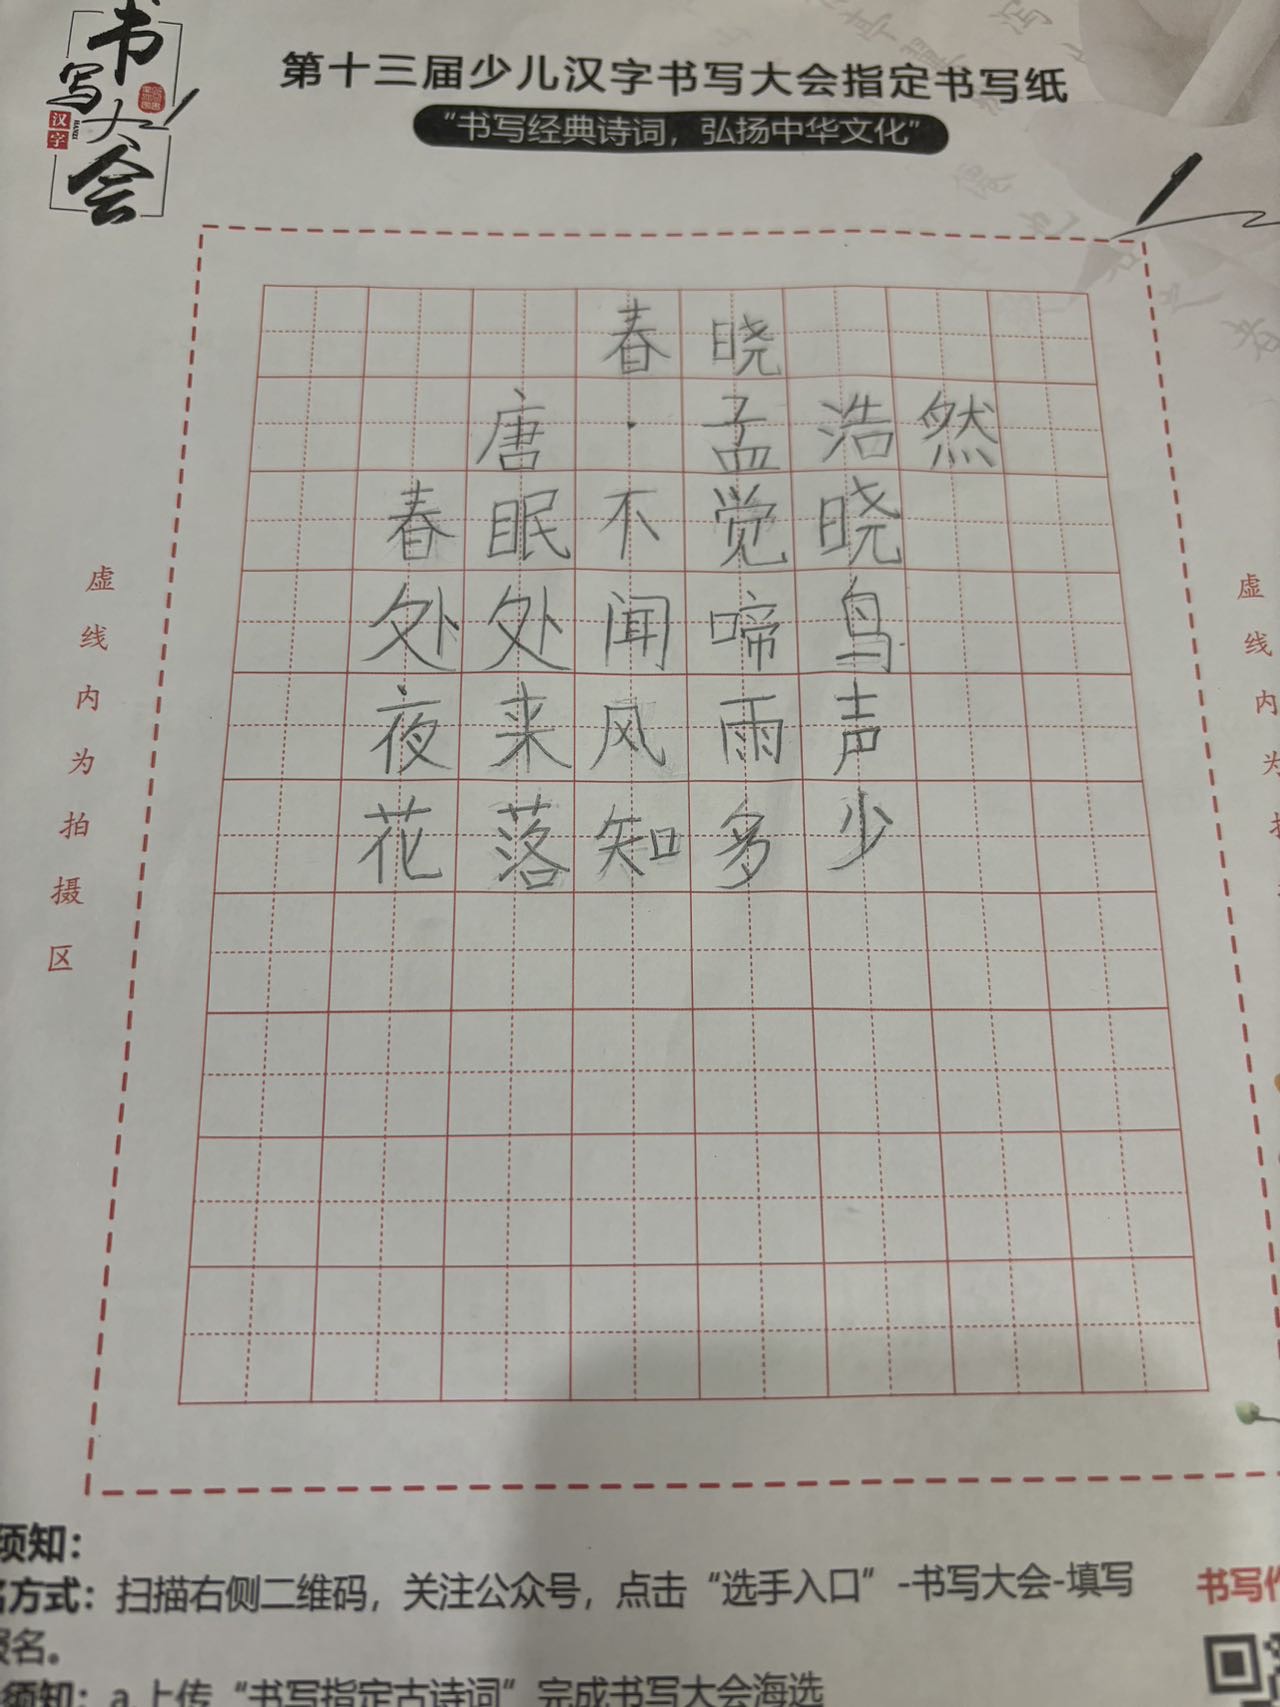 书写大会
汉字
第十三届少儿汉字书写大会指定书写纸
“书写经典诗词，弘扬中华文化”
春晓
唐·孟浩然
春眠不觉晓
处处闻啼鸟
夜来风雨声
花落知多少
虚线内为拍摄区
虚线内为
须知：
名方式：扫描右侧二维码，关注公众号，点击“选手入口”-书写大会-填写
报名。
须知：a.上传“书写指定古诗词”完成书写大会海选
书写作